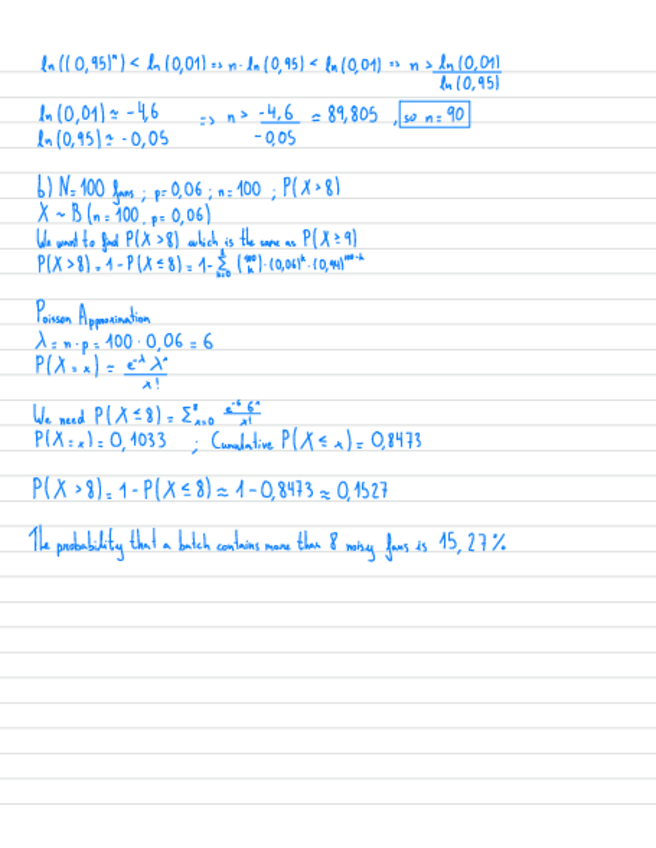 ln((0,95)ⁿ) < ln(0,01) => n·ln(0,95) < ln(0,01) => n > ln(0,01) / ln(0,95)
ln(0,01) ≈ -4,6 => n > -4,6 / -0,05 = 89,805, so n = 90
ln(0,95) ≈ -0,05
b) N = 100 fans ; p = 0,06 ; n = 100 ; P(X > 8)
X ~ B(n = 100, p = 0,06)
We want to find P(X > 8) which is the same as P(X ≥ 9)
P(X > 8) = 1 - P(X ≤ 8) = 1 - Σ⁸ₖ₌₀ (100 k)·(0,06)ᵏ·(0,94)¹⁰⁰⁻ᵏ
Poisson Approximation
λ = n·p = 100·0,06 = 6
P(X = x) = e^-λ λ^x / x!
We need P(X ≤ 8) = Σ⁸ₓ₌₀ e⁻⁶ 6ˣ / x!
P(X = x) = 0,1033 ; Cumulative P(X ≤ x) = 0,8473
P(X > 8) = 1 - P(X ≤ 8) ≈ 1 - 0,8473 ≈ 0,1527
The probability that a batch contains more than 8 noisy fans is 15,27%